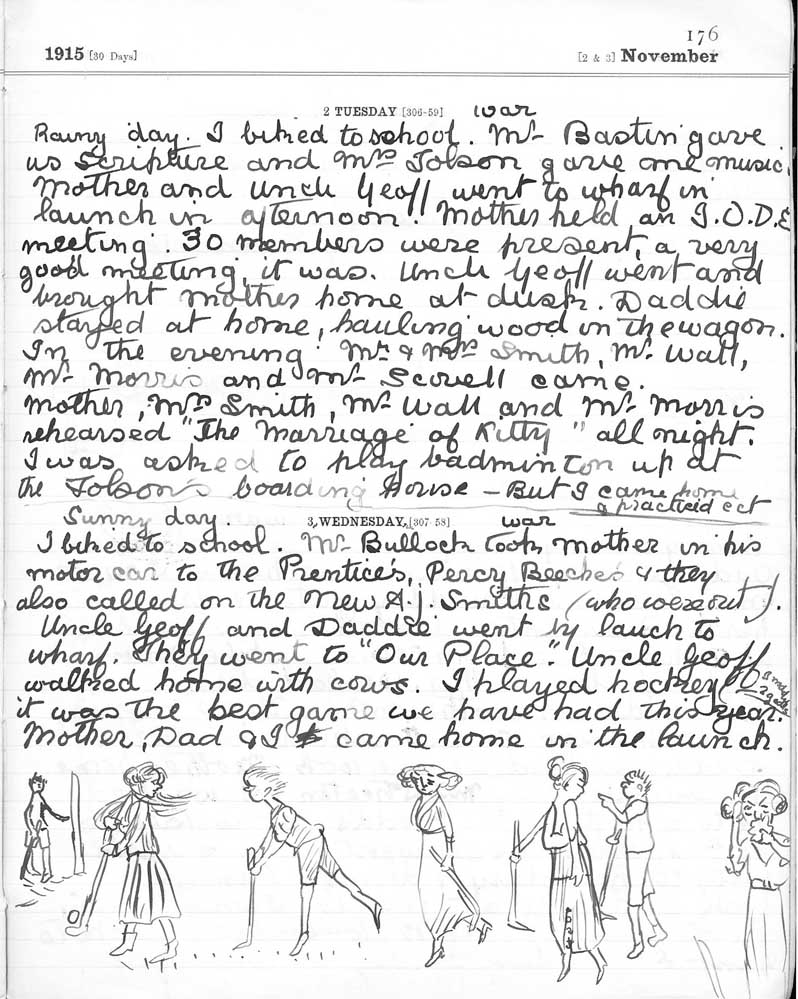 176
1915 [30 Days] [2 & 3] November
2 TUESDAY [306-59] war
Rainy day. I biked to school. Mr Bastin gave
us Scripture and Mrs Tolson gave me music.
Mother and Uncle Geoff went to wharf in
launch in afternoon. Mother held an I.O.D.E
meeting. 30 members were present, a very
good meeting, it was. Uncle Geoff went and
brought mother home at dusk. Daddie
stayed at home, hauling wood in the wagon.
In the evening Mr & Mrs Smith, Mr Wall,
Mr Morris and Mr Scovell came.
Mother, Mrs Smith, Mr Wall and Mr Morris
rehearsed "The Marriage of Kitty" all night.
I was asked to play badminton up at
the Tolson's boarding House – But I came home
& practiced ect
Sunny day. 3, WEDNESDAY, [307-58] war
I biked to school. Mr Bullock took mother in his
motor car to the Prentice's, Percy Beeches & they
also called on the New A.J. Smiths (who were out).
Uncle Geoff and Daddie went by lauch to
wharf. They went to "Our Place". Uncle Geoff
walked home with cows. I played hockey
it was the best game we have had this year.
Mother, Dad & I came home in the launch.